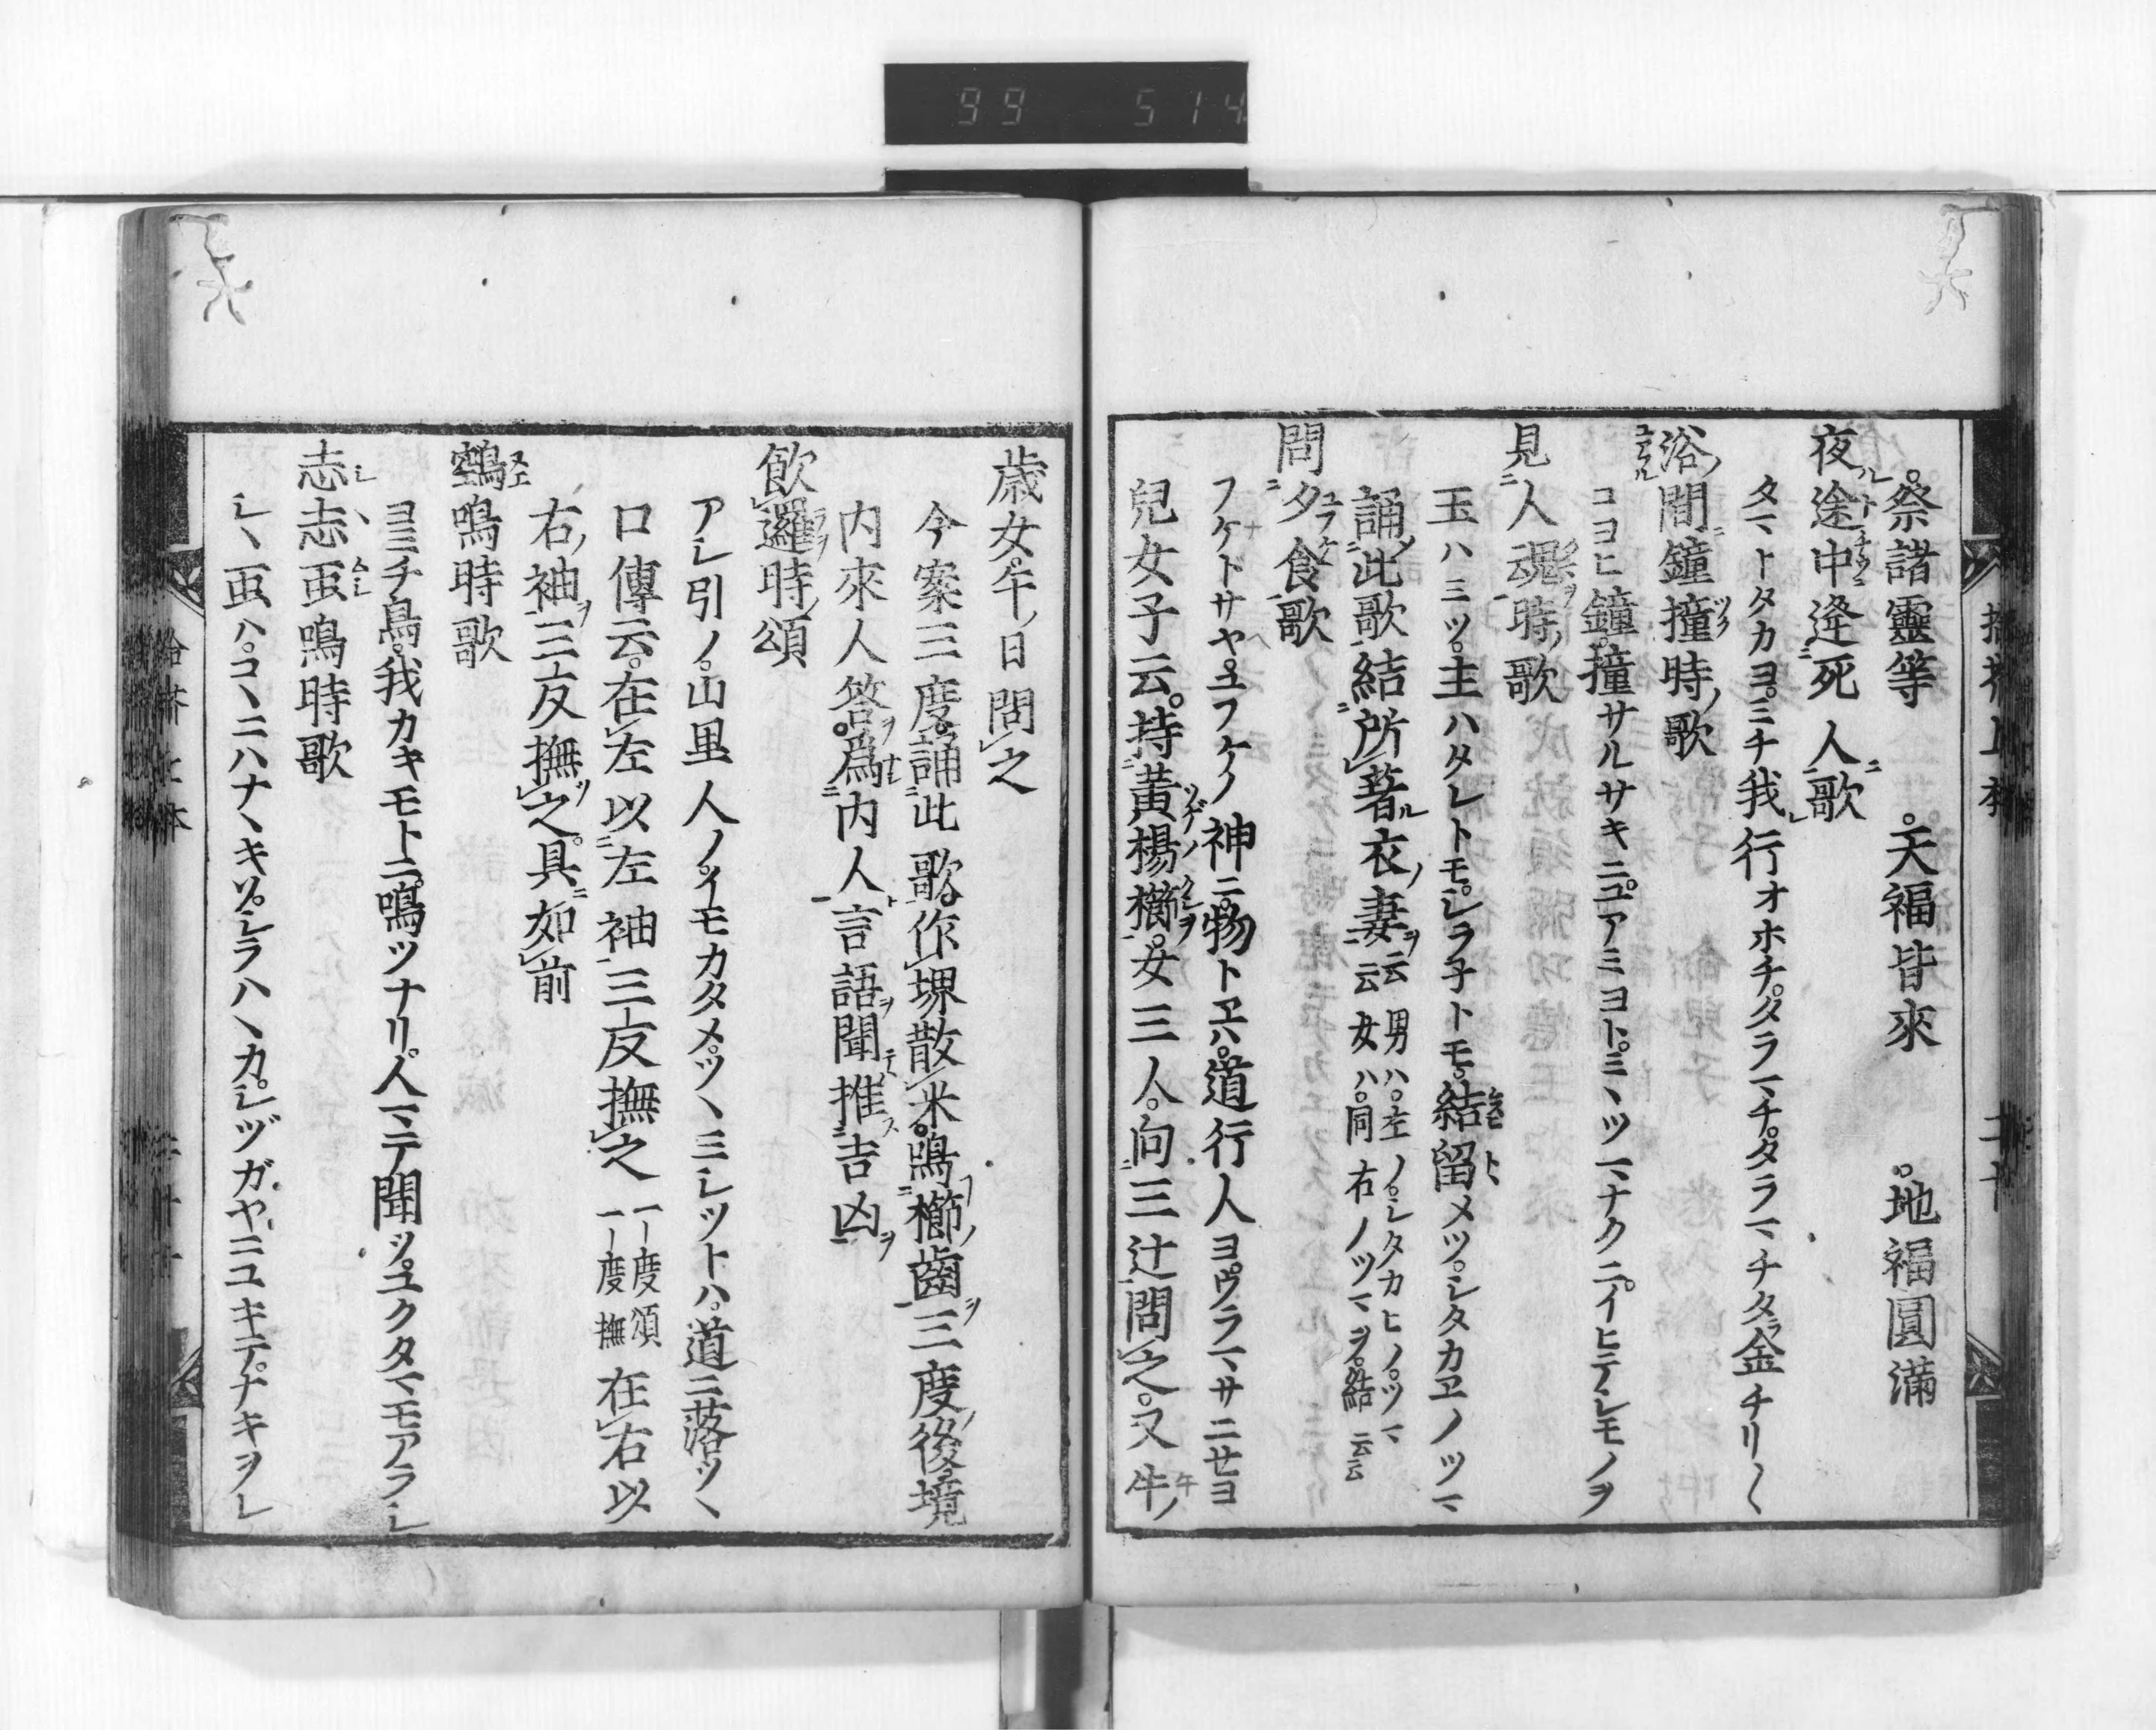 99 514
祭諸靈等 天福皆來 地福圓滿
夜途中逢死人歌
タマトタカヨミチ我行オホチタラマチタラマチタラ金チリ〱
浴間鐘撞時歌
コヨヒ鐘撞サルサキニユアミヨトミヽツマナクニイヒテシモノヲ
見人魂時歌
玉ハミツ主ハタレトモシラ子トモ結留メツシタカヱノツマ
誦此歌結所著衣妻云云 男ハ左ノシタカヒノツマ 女ハ同右ノツマヲ結云云
問夕食歌
フケトサヤユフケノ神ニ物トヱハ道行人ヨウラマサニセヨ
兒女子云持黃楊櫛女三人向三辻問之又牛
歲女午日問之
今案三度誦此歌作堺散米鳴櫛齒三度後境
内來人答爲内人言語聞推吉凶
飮邏時頌
アレ引ノ山里人ノイモカタメツヽミレツトハ道ニ落ツヽ
口傳云在左以左袖三反撫之 一度頌 一度撫 在右以
右袖三反撫之具如前
鵼鳴時歌
ヨミチ鳥我カキモトニ鳴ツナリ人マテ聞ツユクタマモアラシ
志志虫鳴時歌
シヽ虫ハコヽニハナヽキソシラハヽカシヅガヤニユキテナキヲレ